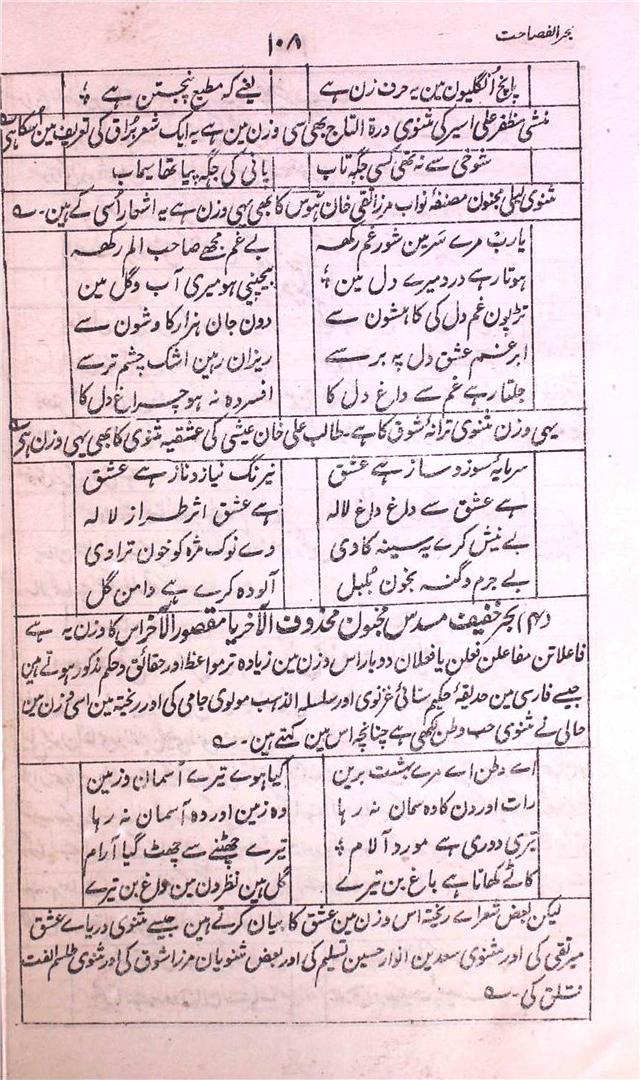 بحر الفصاحت
۱۰۸
پانچ اُنگلیون مین یہ حرف زن ہے یعنے کہ مطیع پنجتن ہے ؛
منشی مظفر علی اسیر کی مثنوی درۃ التاج بھی اسی وزن مین ہے یہ ایک شعر بُراق کی تعریف مین اُسکا ہی ؎
شوخی سے نہ تھی کسی جگہ تاب پانی کی جگہ پیا تھا سیماب
مثنوی لیلی مجنون مصنفۂ نواب مرزا تقی خان ہوس کا بھی یہی وزن ہے یہ اشعار اُسی کے ہین۔ ؎
یارب مرے سر مین شور غم رکھہ بے غم مجھے صاحب الم رکھہ
ہوتا رہے درد میرے دل مین ؛ بیچینی ہو میری آب و گل مین
تڑپون غم دل کی کاہشون سے دون جان ہزار کاوشون سے
ابر غم عشق دل پہ برسے ریزان رہین اشک چشم تر سے
جلتا رہے غم سے داغ دل کا افسردہ نہ ہو چراغ دل کا
یہی وزن مثنوی ترانۂ شوق کا ہے۔ طالب علی خان عیشی کی عشقیہ مثنوی کا بھی یہی وزن ہی ؎
سرمایۂ سوز و ساز ہے عشق نیرنگ نیاز و ناز ہے عشق
ہے عشق سے داغ داغ لالہ ہے عشق اثر طراز لالہ
بے نیش کرے یہ سینہ کادی دے نوک مژہ کو خون تراوی
بے جرم و گنہ بخون بلبل آلودہ کرے ہے دامن گل
دہم) بحر خفیف مسدس مجنون محذوف الآخر یا مقصور الآخر اس کا وزن یہ ہے
فاعلاتن مفاعلن فعلن یا فعلان دو بار اس وزن مین زیادہ تر مواعظ اور حقائق و حکم مذکور ہوتے ہین
جیسے فارسی مین حدیقۂ حکیم سنائی غزنوی اور سلسلہ الذہب مولوی جامی کی اور ریختہ مین اسی وزن مین
حالی نے مثنوی حب وطن لکھی ہے چنانچہ اس مین کہتے ہین۔ ؎
اے وطن اے مرے بہشت برین کیا ہوے تیرے آسمان و زمین
رات اور دن کا وہ سمان نہ رہا وہ زمین اور وہ آسمان نہ رہا
تیری دوری ہے مورد آلام ؛ تیرے چھٹنے سے چھٹ گیا آرام
کاٹے کھاتا ہے باغ بن تیرے گل ہین نظرون مین داغ بن تیرے
لیکن بعض شعراے ریختہ اس وزن مین عشق کا بیان کرتے ہین جیسے مثنوی دریاے عشق
میر تقی کی اور مثنوی سعدین انوار حسین تسلیم کی اور بعض مثنویان مرزا شوق کی اور مثنوی طلسم الفت
قلق کی۔ ؎